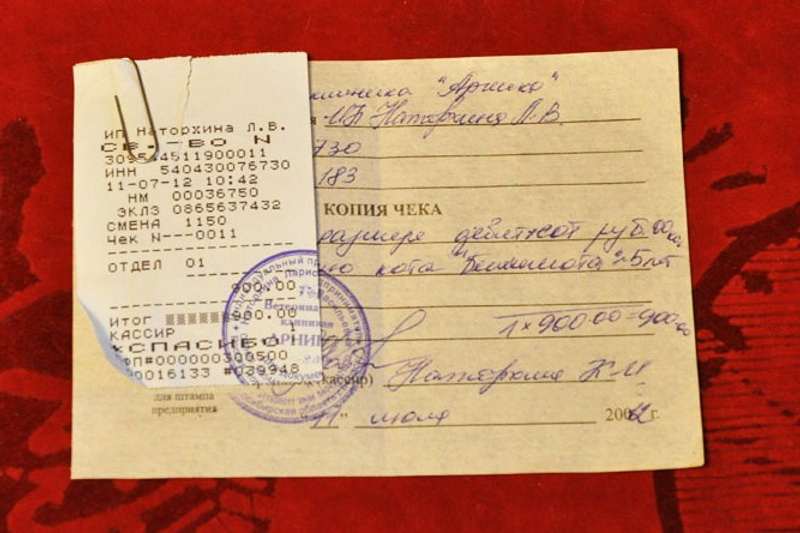 ИП Наторхина Л.В.
СВ.-ВО N
309544511900011
ИНН 540430076730
11-07-12 10:42
НМ 00036750
ЭКЛЗ 0865637432
СМЕНА 1150
Чек N---0011
ОТДЕЛ 01
900.00
Итог 900.00
КАССИР 1
*СПАСИБО!
#000000300500
00016133 #039948
клиника "Арника"
ИП Наторхина Л.В.
730
183
КОПИЯ ЧЕКА
размере девятьсот руб. 00 коп
кота "Бегемота" 5 лет
1 x 900-00 = 900-00
(кассир) Наторхина К.И
для штампа
предприятия
"11" июля 2012 г.
Ветеринарная
клиника
АРНИКА